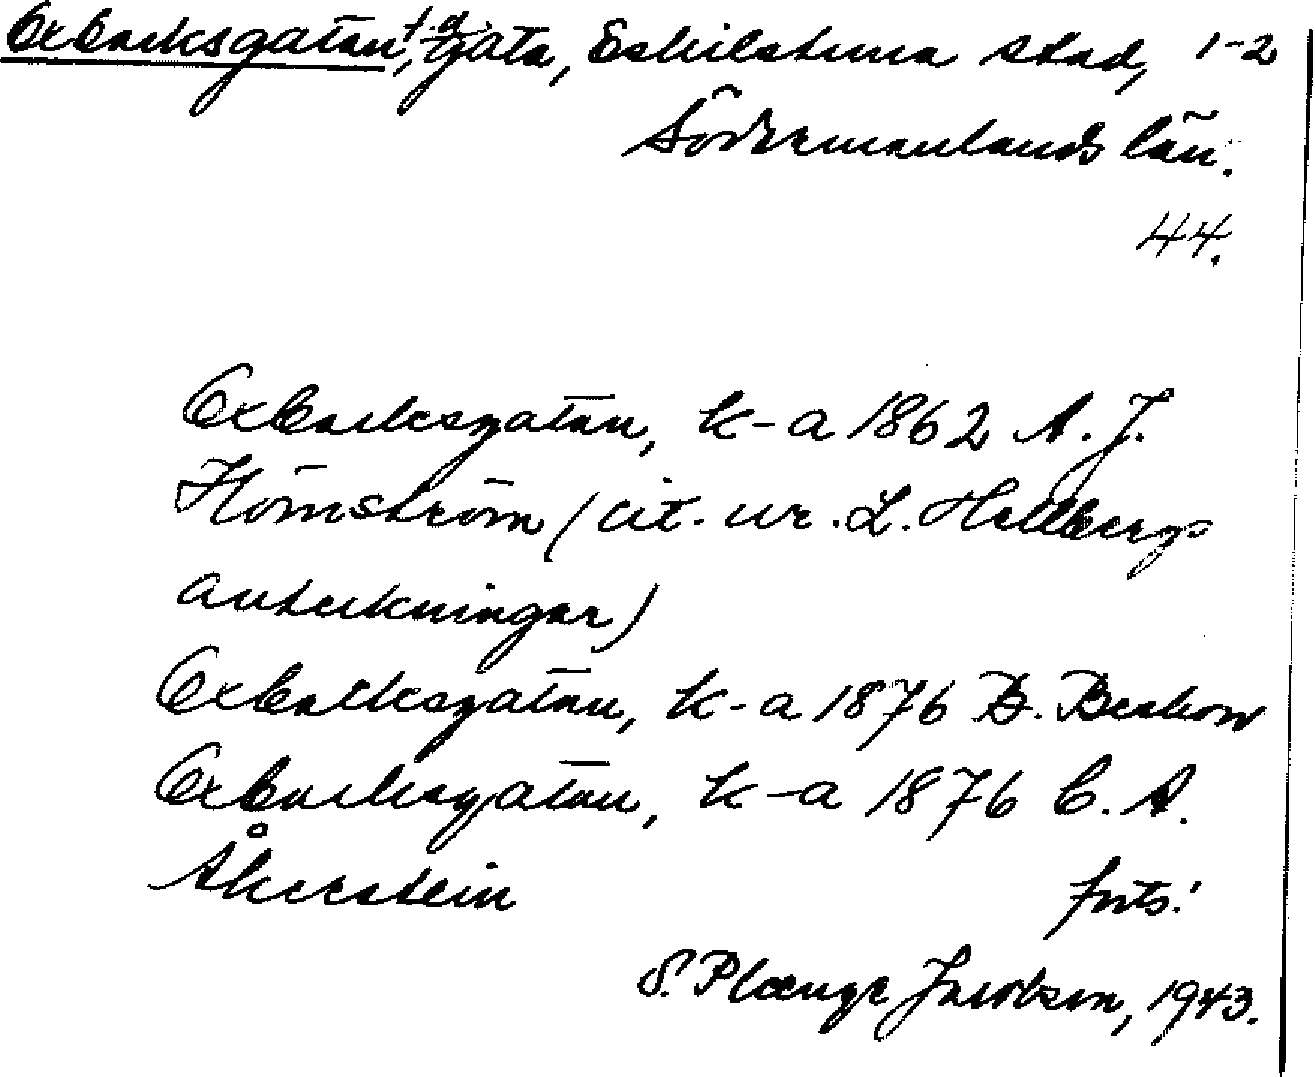 Oxbacksgatan, f.d. gata, Eskilstuna stad, 1-2
Södermanlands län.
44.
Oxbacksgatan, k-a 1862 A. J.
Hörnström (cit. ur. L. Hellbergs
anteckningar)
Oxbacksgatan, k-a 1876 B. Beskow
Oxbacksgatan, k-a 1876 C. A.
Åkerstein
forts.!
S. Plœnge Jacobson, 1943.